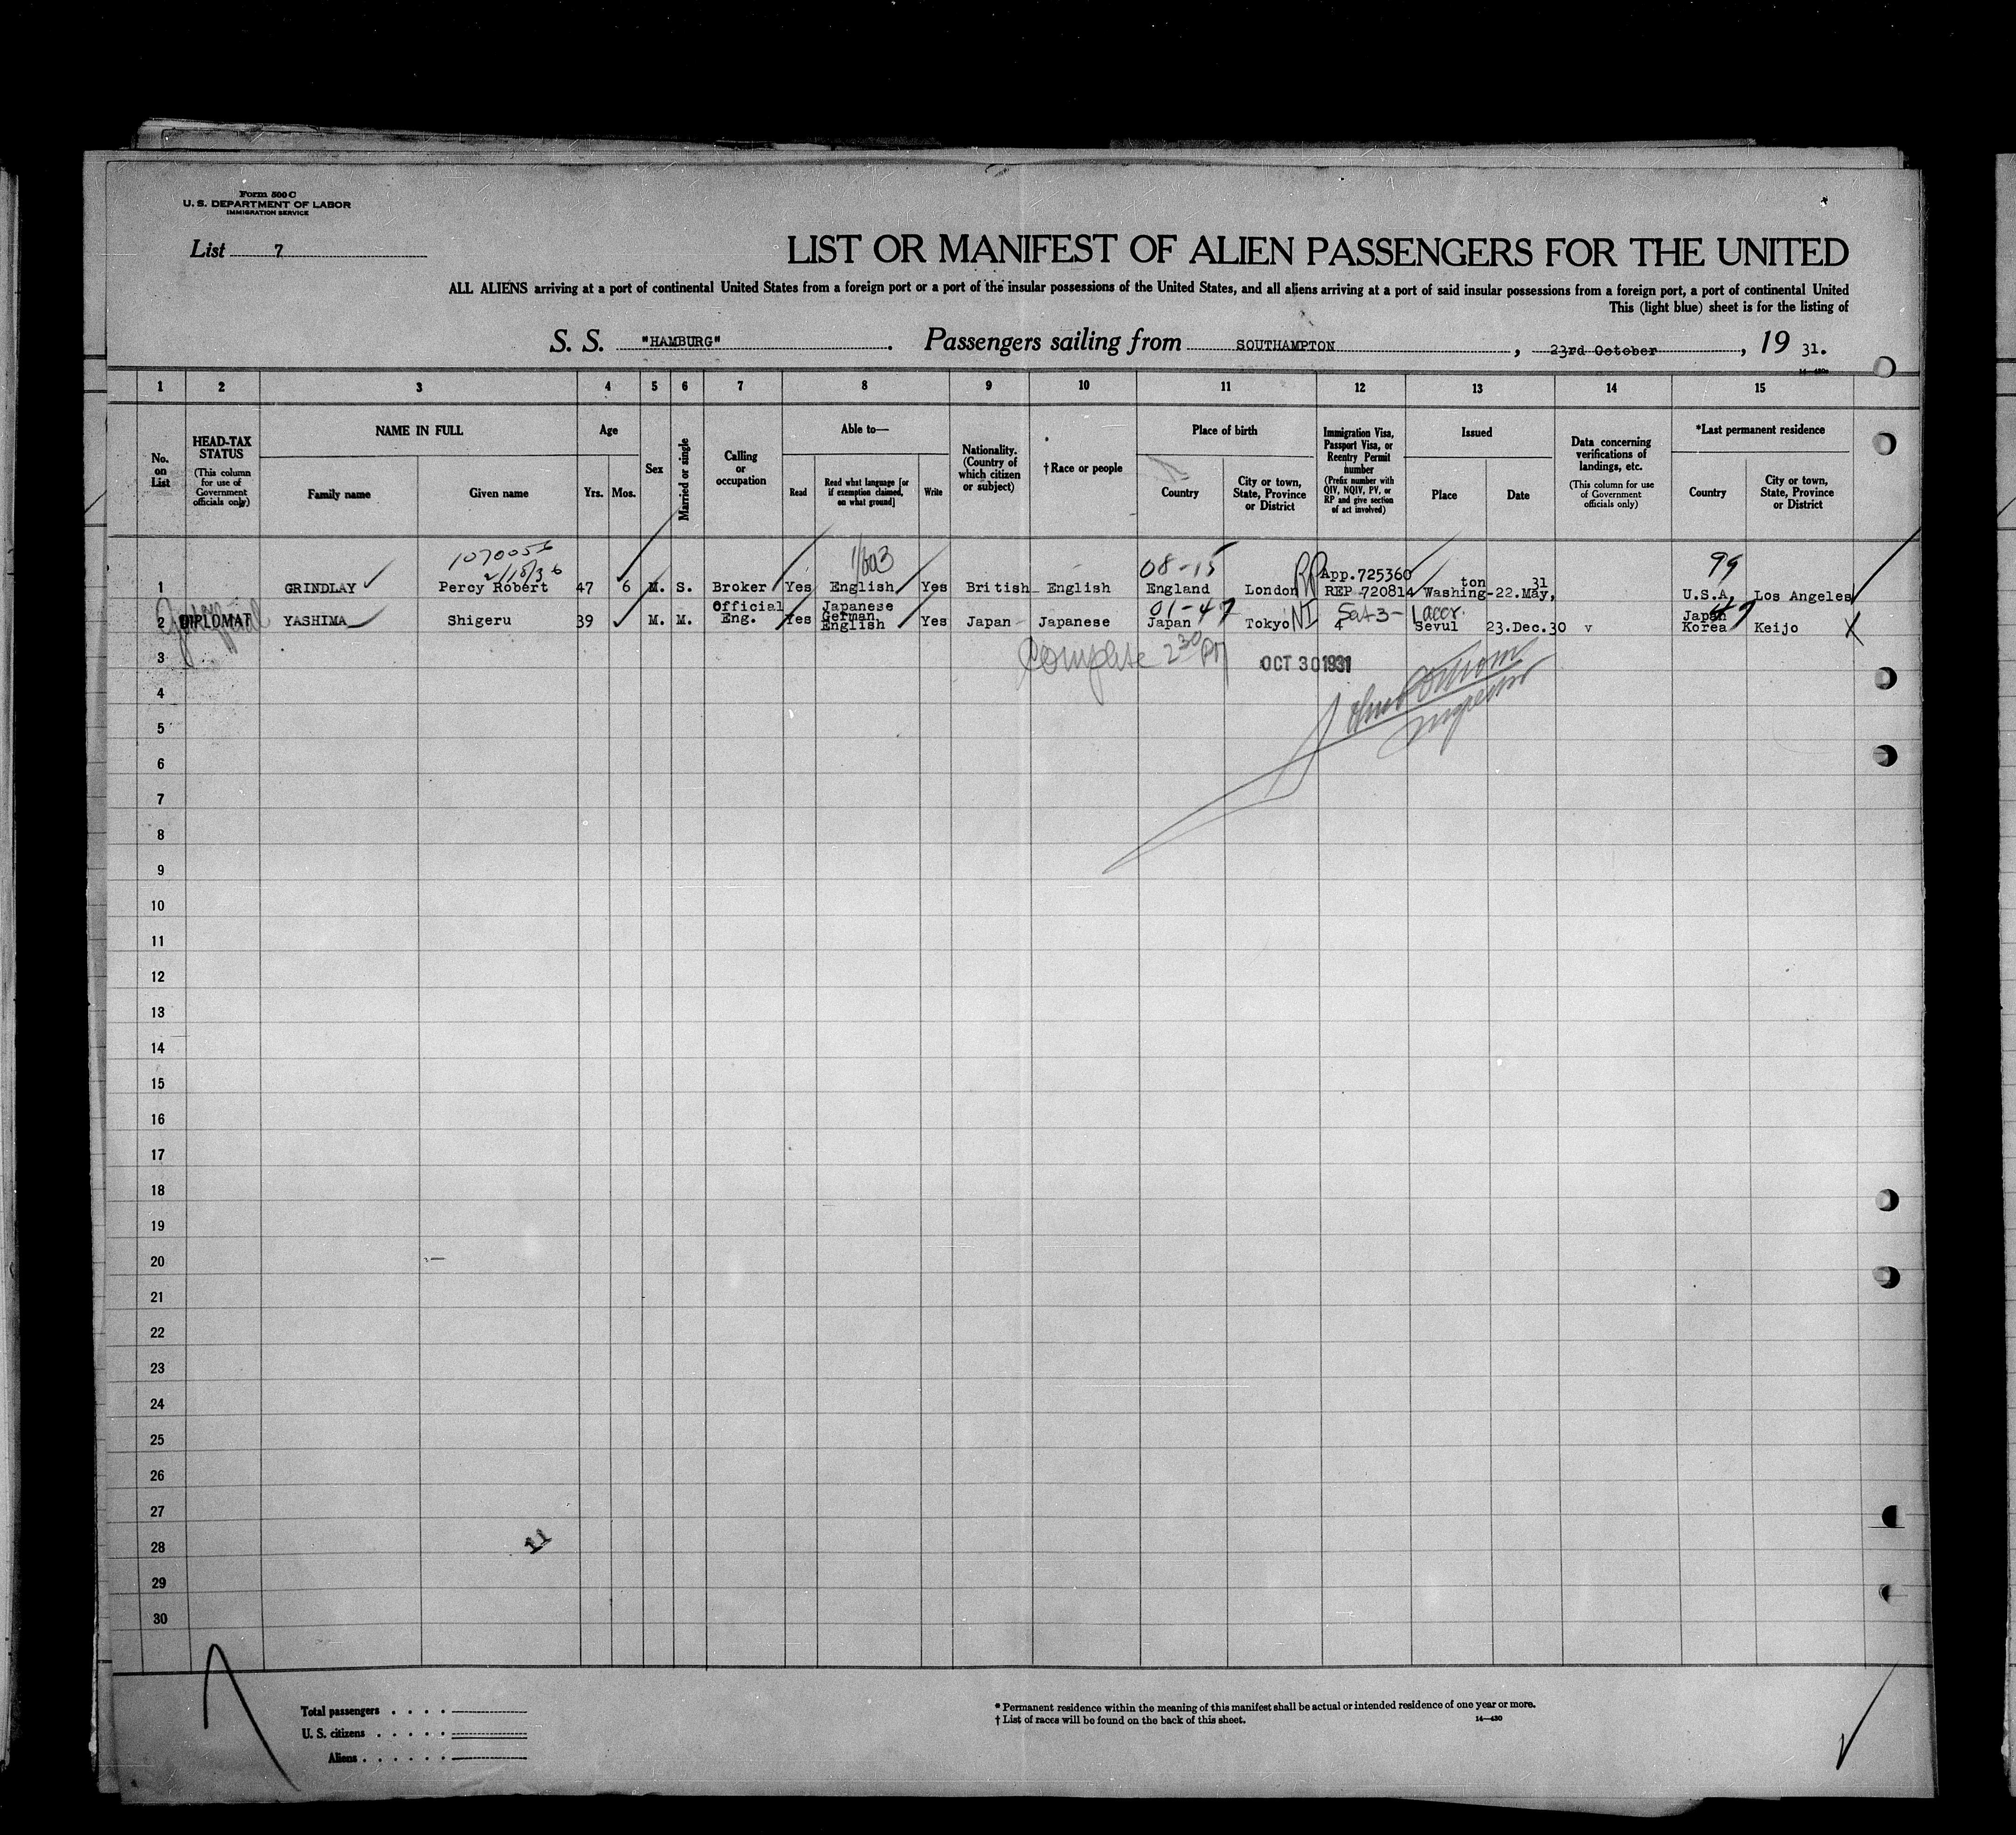 Form 500 C
U. S. DEPARTMENT OF LABOR
IMMIGRATION SERVICE
List 7
LIST OR MANIFEST OF ALIEN PASSENGERS FOR THE UNITED
ALL ALIENS arriving at a port of continental United States from a foreign port or a port of the insular possessions of the United States, and all aliens arriving at a port of said insular possessions from a foreign port, a port of continental United
This (light blue) sheet is for the listing of
S. S. "HAMBURG". Passengers sailing from SOUTHAMPTON, 23rd October, 19 31.
1 2 3 4 5 6 7 8 9 10 11 12 13 14 15
No. on List
HEAD-TAX STATUS (This column for use of Government officials only)
NAME IN FULL
Family name
Given name
Age
Yrs. Mos.
Sex
Married or single
Calling or occupation
Able to—
Read
Read what language [or if exemption claimed, on what ground]
Write
Nationality. (Country of which citizen or subject)
† Race or people
Place of birth
Country
City or town, State, Province or District
Immigration Visa, Passport Visa, or Reentry Permit number (Prefix number with QIV, NQIV, PV, or RP and give section of act involved)
Issued
Place
Date
Data concerning verifications of landings, etc. (This column for use of Government officials only)
*Last permanent residence
Country
City or town, State, Province or District
1070056
2/18/36
1/603
08-15
99
1 GRINDLAY Percy Robert 47 6 M. S. Broker Yes English Yes British English England London RP App. 725360 REP 720814 Washington 22.May, 31 U.S.A. Los Angeles
01-47
2 DIPLOMAT YASHIMA Shigeru 39 M. M. Official Eng. Yes Japanese German English Yes Japan Japanese Japan Tokyo NI 4 Sevul 23.Dec.30 v Japan Korea Keijo
3 Complete 2 30 PM OCT 30 1931
4
5 Inspector
6
7
8
9
10
11
12
13
14
15
16
17
18
19
20
21
22
23
24
25
26
27
28
29
30
Total passengers
U. S. citizens
Aliens
* Permanent residence within the meaning of this manifest shall be actual or intended residence of one year or more.
† List of races will be found on the back of this sheet.
14—430